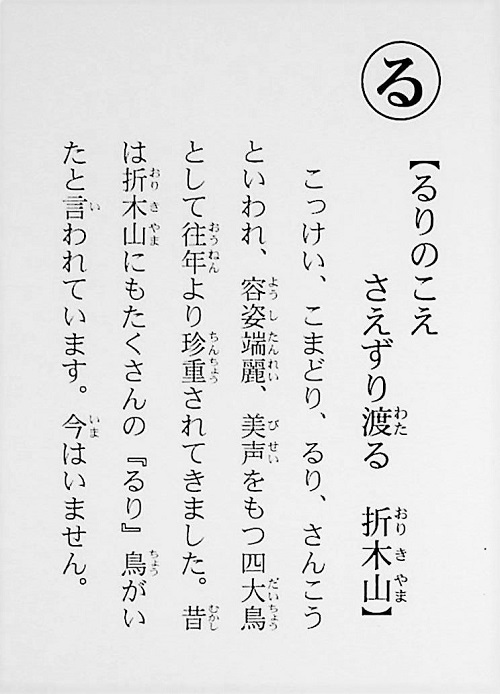 る
【るりのこえ
さえずり渡る　折木山】
こっけい、こまどり、るり、さんこう
といわれ、容姿端麗、美声をもつ四大鳥
として往年より珍重されてきました。昔
は折木山にもたくさんの『るり』鳥がい
たと言われています。今はいません。